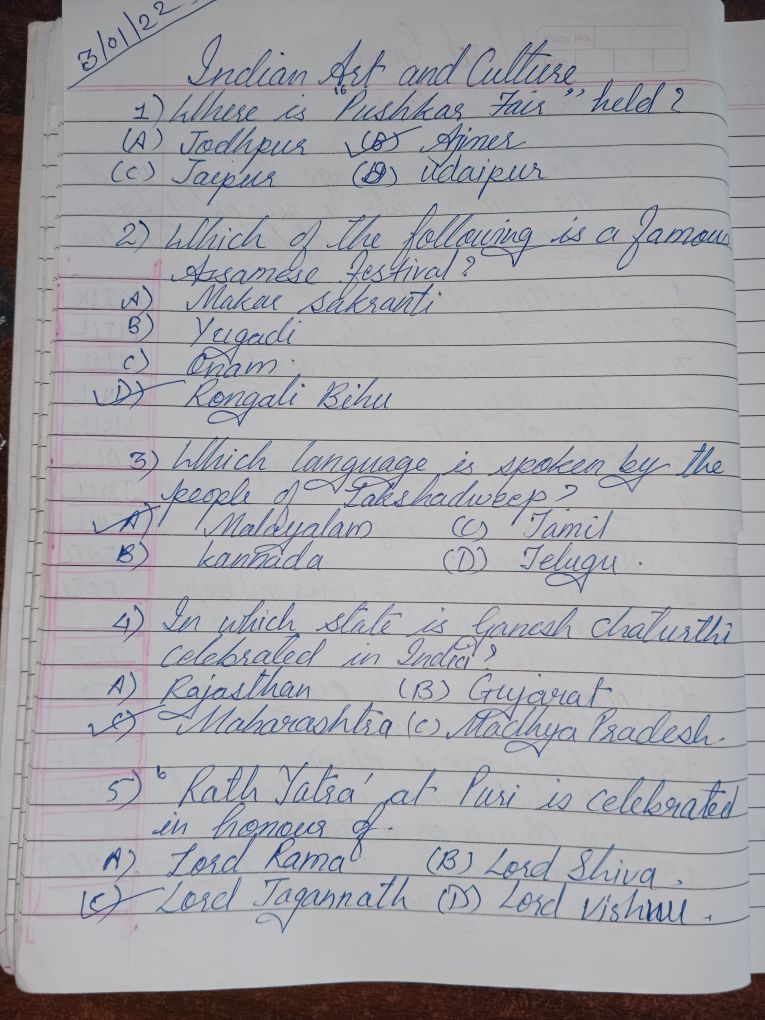 3/01/22
Indian Art and Culture
1) Where is "Pushkar Fair" held?
(A) Jodhpur (B) Ajmer
(C) Jaipur (D) Udaipur
2) Which of the following is a famous
Assamese Festival?
A) Makar Sakranti
B) Yugadi
C) Onam.
D) Rongali Bihu
3) Which language is spoken by the
people of Lakshadweep?
A) Malayalam (C) Tamil
B) Kannada (D) Telugu.
4) In which state is Ganesh Chaturthi
celebrated in India?
A) Rajasthan (B) Gujarat
C) Maharashtra (C) Madhya Pradesh.
5) 'Rath Yatra' at Puri is celebrated
in honour of.
A) Lord Rama (B) Lord Shiva.
(C) Lord Jagannath (D) Lord Vishnu.